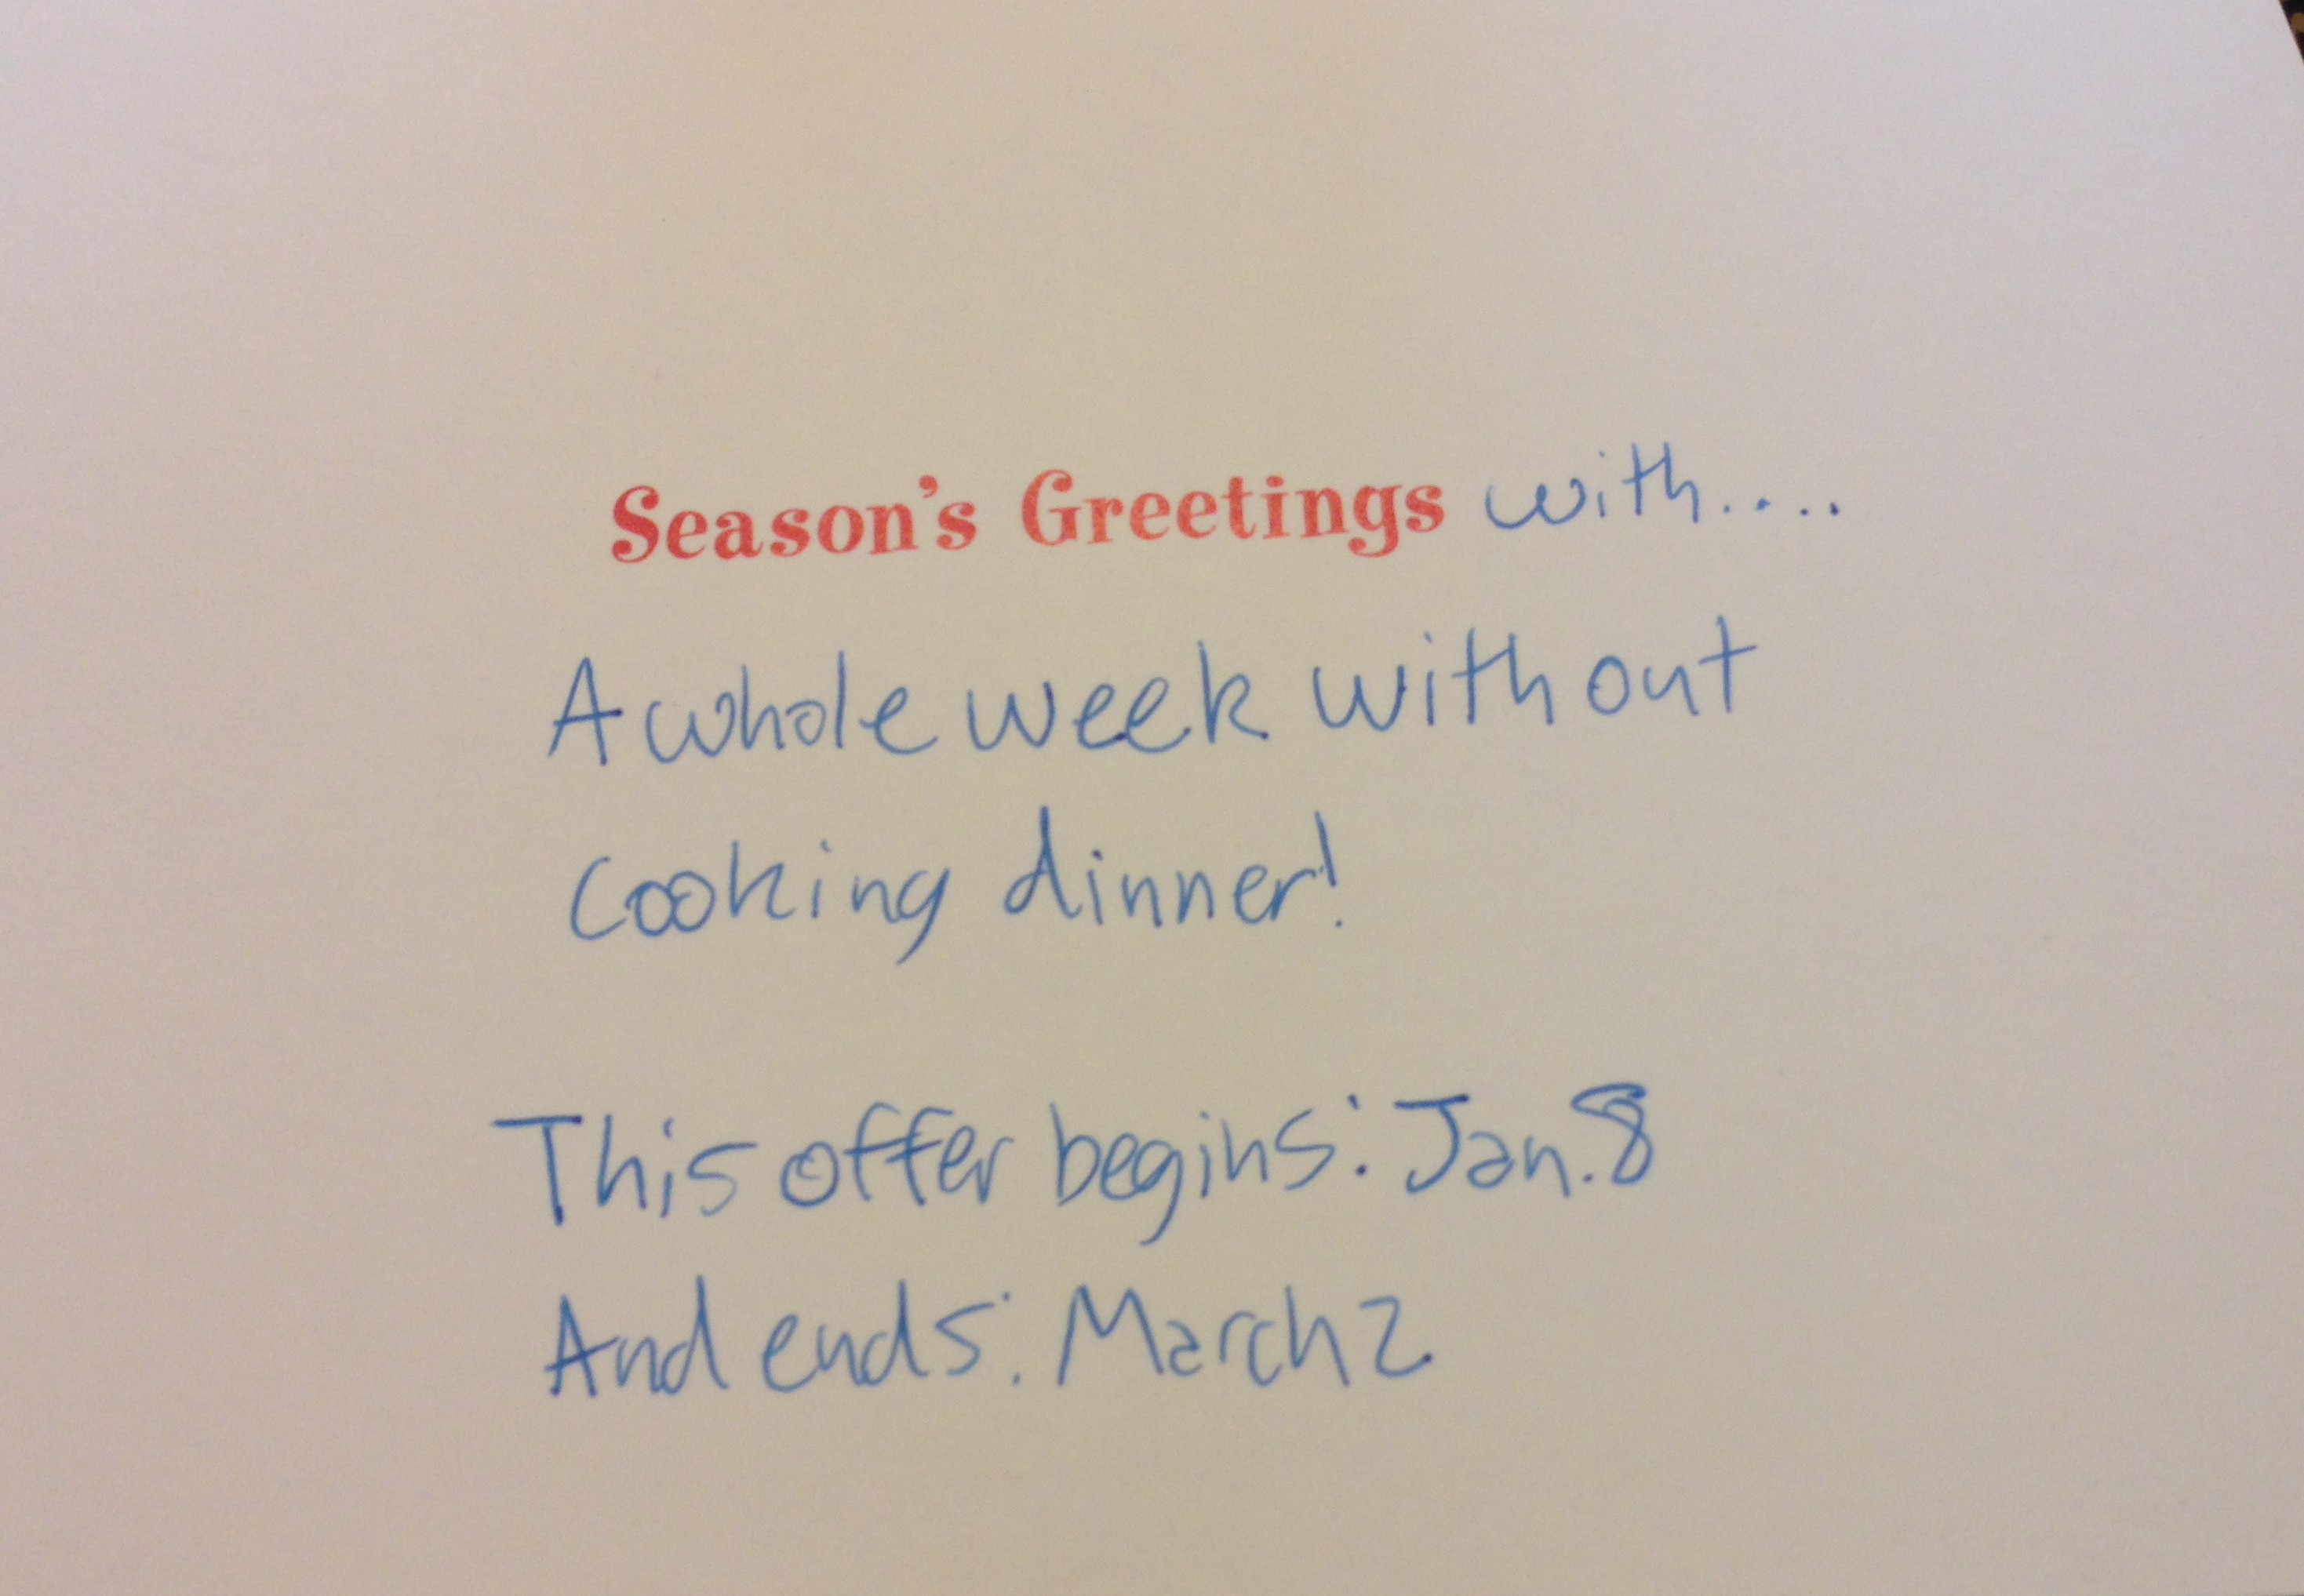 Season's Greetings with....
A whole week without
cooking dinner!
This offer begins: Jan. 8
And ends: March 2